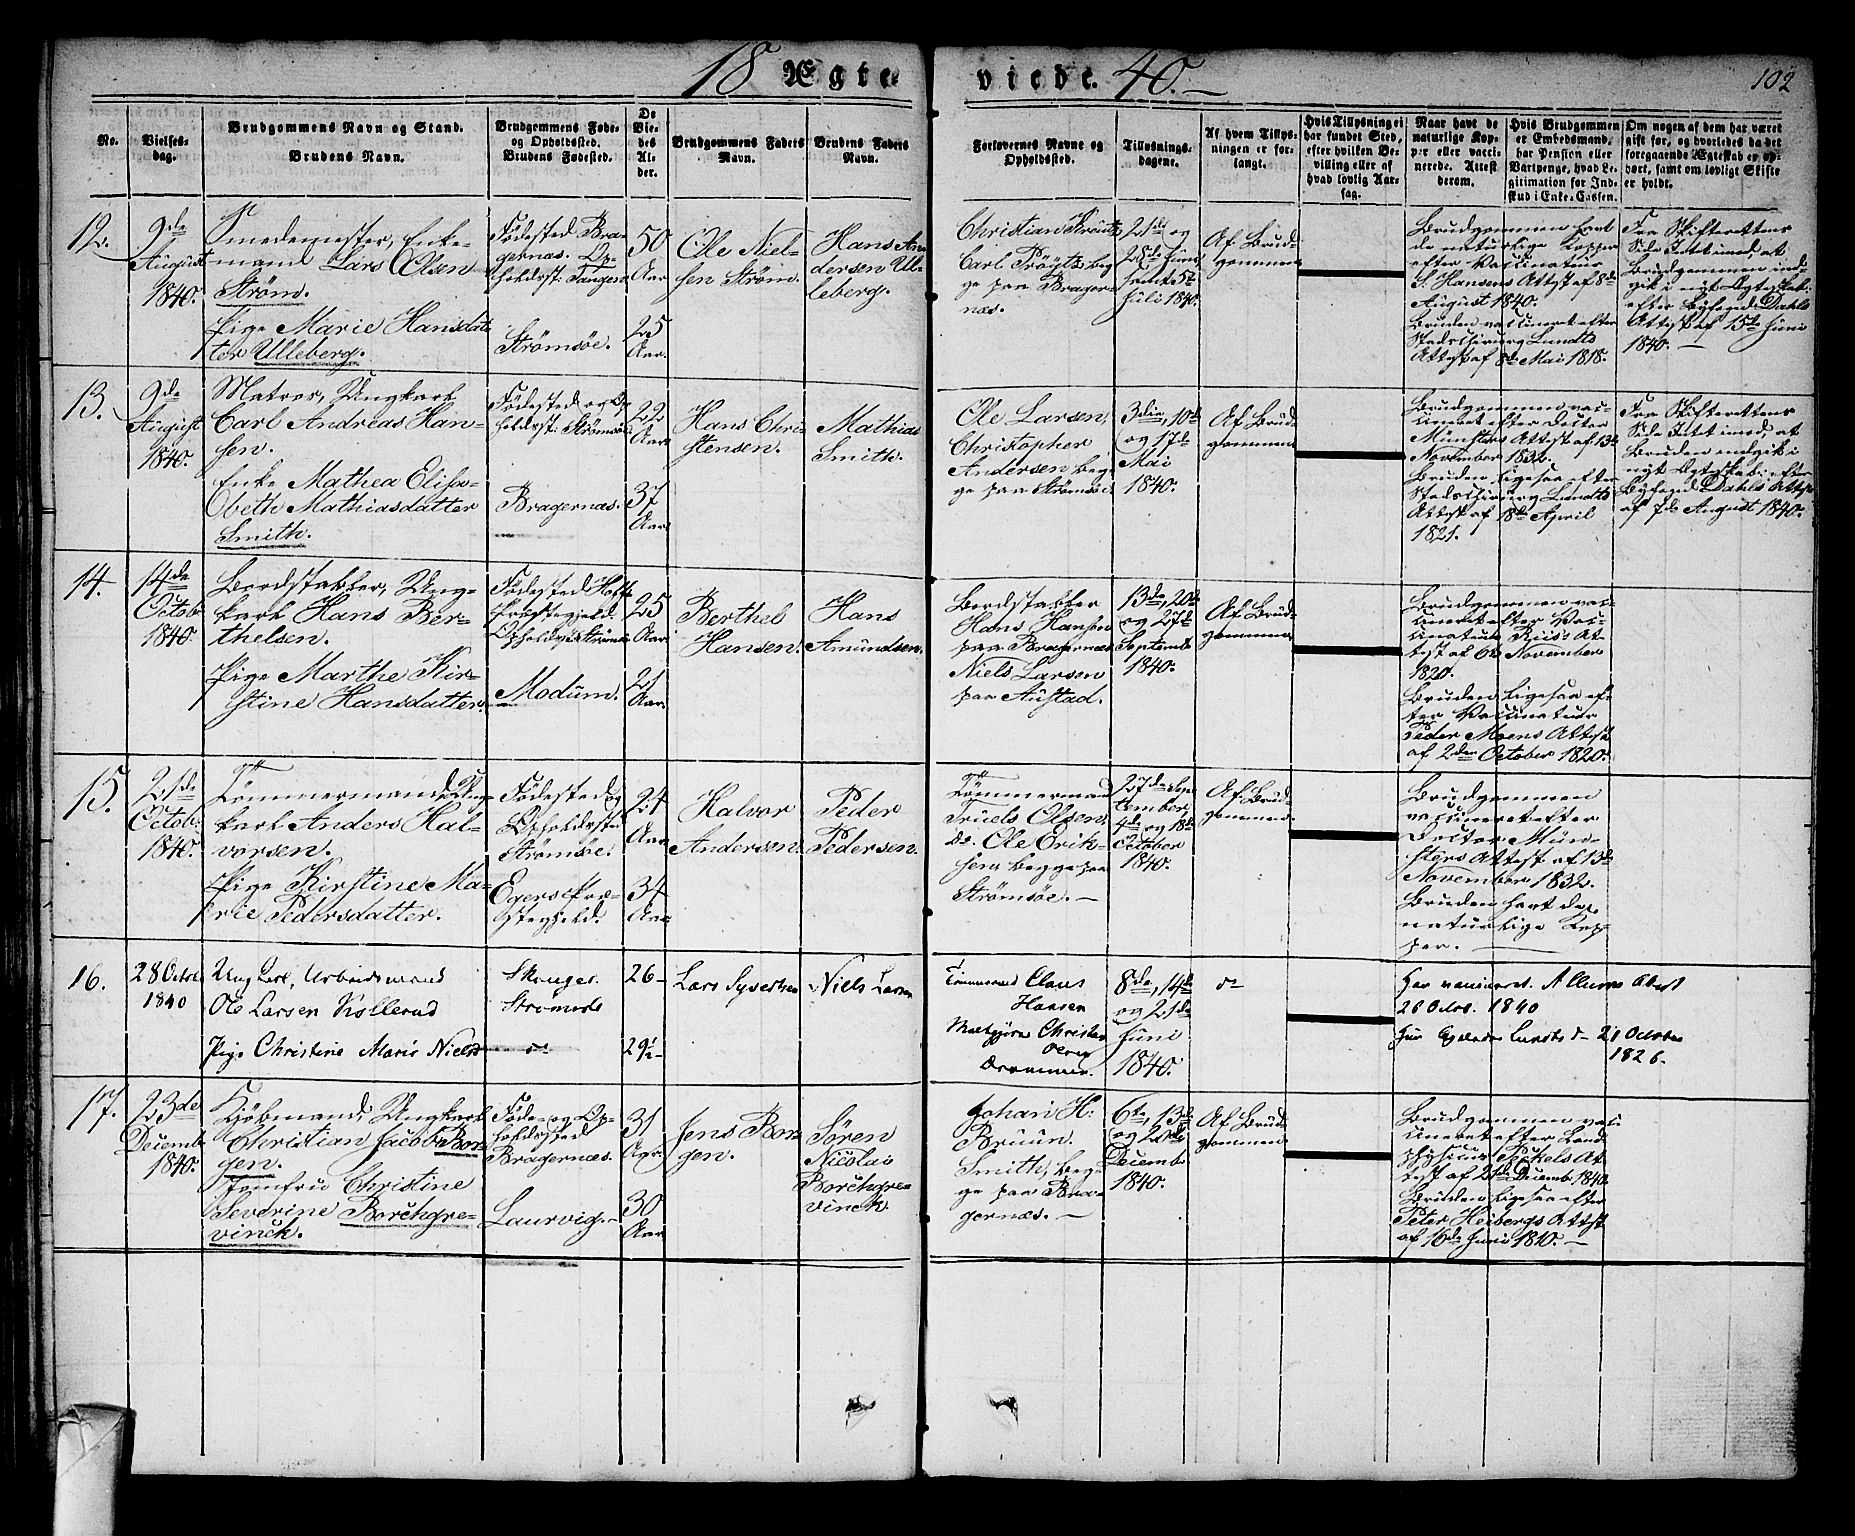 18 Ægte
viede. 40.
102
No.
Vielses-
dag.
Brudgommens Navn og Stand.
Brudens Navn.
Brudgommens Føde-
og Opholdsted.
Brudens Fødested.
De
Vie-
des
Al-
der.
Brudgommens Faders
Navn.
Brudens Faders
Navn.
Forlovernes Navne og
Opholdssted.
Tillysnings-
dagene.
Af hvem Tillys-
ningen er for-
langt.
Hvis Tillysning ei
har fundet Sted,
efter hvilken Be-
villing eller af
hvad lovlig Aar-
sag.
Naar havt de
naturlige Kop-
per eller vacci-
nerede. Attest
derom.
Hvis Brudgommen
er Embedsmand,
har Pension eller
Vartpenge, hvad Le-
gitimation for Ind-
skud i Enke-Cassen.
Om nogen af dem har været
gift før, og hvorledes da det
foregaaende Ægteskab er op-
hørt, samt om lovligt Skifte
er holdt.
12.
9de
August
1840.
Smedemester, Enke-
mand Lars Olsen
Strøm.
Pige Marie Hansdat-
ter Ulleberg.
Fødested Bra-
gernæs. Op-
holdsst. Tangen
Strømsøe.
50
Aar
25
Aar.
Ole Niel-
sen Strøm.
Hans An-
dersen Ul-
leberg.
Christian
Carl
ge paa Brager-
næs.
21de og
28de Juni
samt 5te
Juli 1840.
Af Brud-
gommen
Brudgommen havt
de naturlige Kopper
efter Vaccinateur
S. Hansens Attest af 8de
August 1840.
Bruden vaccineret efter
Stadschirurg Lundts
Attest af 8de Mai 1818.
Fra Skifterettens
Side Intet imod, at
Brudgommen ind-
gik i nyt Ægteskab
efter Byfoged Dahls
Attest af 15de Juni
1840.
13.
9de
August
1840.
Matros, Ungkarl
Carl Andreas Han-
sen.
Enke Mathea Elisa-
beth Mathiasdatter
Smith.
Fødested og Op-
holdsst. Strømsøe
Bragernæs.
22
Aar.
37
Aar.
Hans Chri-
stensen.
Mathias
Smith.
Ole Larsen,
Christopher
Andersen beg-
ge paa Strømsøe.
3die, 10de
og 17de
Mai
1840.
Af Brud-
gommen
Brudgommen vac-
cineret efter Doctor
Münsters Attest af 13de
November 1832.
Bruden ligesaa efter
Stadschirurg Lundts
Attest af 18de April
1821.
Fra Skifterettens
Side Intet imod, at
Bruden indgik i
nyt Ægteskab: efter
Byfoged Dahls Attest
af 7de August 1840.
14.
14de
Octob.
1840.
Bordstabler, Ung-
karl Hans Ber-
thelsen.
Pige Marthe Kir-
stine Hansdatter.
Fødested
Præstegjeld.
Opholdsst. Strømsøe
Modum.
25
Aar.
21
Aar.
Berthel
Hansen.
Hans
Amundsen.
Bordstabler
Hans Hansen
paa Bragernæs
Niels Larsen
paa Austad.
13de, 20de
og 27de
Septemb.
1840.
Af Brud-
gommen
Brudgommen vac-
cineret efter Vac-
cinateur Riis's At-
test af 6te November
1820.
Bruden ligesaa ef-
ter Vaccinateur
Peder Moens Attest
af 2den October 1820.
15.
21de
Octob.
1840.
Tømmermand, Ung-
karl Anders Hal-
vorsen.
Pige Kirstine Ma-
rie Pedersdatter.
Fødested og
Opholdssted
Strømsøe.
Egers Præ-
stegjeld.
24
Aar.
34
Aar
Halvor
Andersen
Peder
Pedersen.
Tømmermand
Truels Olsen,
do. Ole Erik-
sen, begge paa
Strømsøe.
27de Sep-
tember
4de og 18de
October
1840.
Af Brud-
gommen
Brudgommen
vaccineret efter
Doctor Mün-
sters Attest af 13de
November 1832.
Bruden havt de
naturlige Kop-
per.
16.
28 Octob.
1840
Ungkarl, Arbeidsmand
Ole Larsen Kollerud
Pige Christine Marie Niels
Skouger
Strømsøe
do
26
29½
Lars Syvertsen
Niels Larsen
Tømmermand Claus
Hansen
Christen
Olsen
Drammen.
8de, 14de
og 21de
Juni
1840.
do
Attest
26 Octbr. 1840
Lundts do 21 October
1826.
17.
23de
Decemb.
1840.
Kjøbmand, Ungkarl
Christian Jacob Bor-
gen.
Jomfru Christine
Severine Borchgre-
vinck.
Føde- og Op-
holdssted
Bragernæs.
Laurvig.
31
Aar.
30
Aar.
Jens Bor-
gen.
Søren
Nicolai
Borchgre-
vinck
Johan H:
Bruun.
Smith, beg-
ge paa Bra-
gernæs.
6te, 13de
og 20de
Decemb.
1840.
Af Brud-
gommen
Brudgommen vac-
cineret efter Land-
physicus At-
test af 21de Decemb. 1840
Bruden ligesaa efter
Peter Heibergs Attest
af 16de Juni 1810.